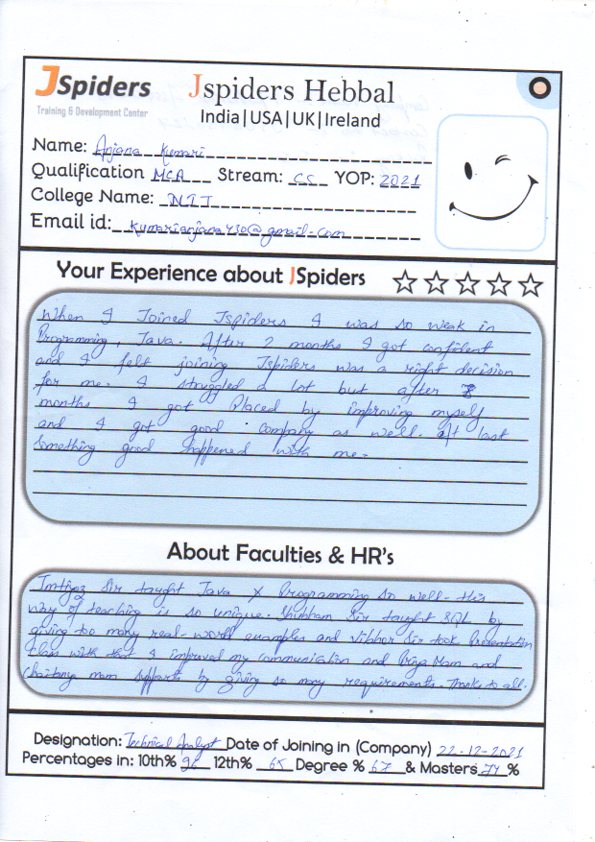 JSpiders
Training & Development Center
Jspiders Hebbal
India|USA|UK|Ireland
Name: Anjana Kumari
Qualification MCA Stream: CS YOP: 2021
College Name: NIT
Email id: kumarianjana430@gmail.com
Your Experience about JSpiders
When I Joined Jspiders I was so weak in
Programming, Java. After 2 months I got confident
and I felt joining Jspiders was a right decision
for me. I struggled a lot but after
months I got Placed by improving myself
and I got good company as well. At last
Something good happened with me.
About Faculties & HR's
Imtiyaz Sir taught Java & Programming so well. His
way of teaching is so unique. Shubham Sir taught SQL by
giving too many real-world examples and Vibhor Sir took Presentation
Class with that I improved my communication and Priya Mam and
Chaitany mam supports by giving so many requirements. Thanks to all.
Designation: Technical Analyst Date of Joining in (Company) 22-12-2021
Percentages in: 10th% 12th% 65 Degree % 67 & Masters 74 %